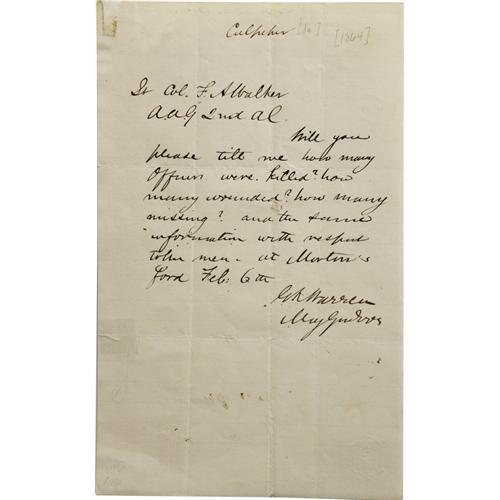 Culpeper [Va] [1864]
Lt Col. F. A Walker
A.A.G 2nd A.C.
Will you
please tell me how many
Officers were killed? how
many wounded? how many
missing? and the same
information with respect
to the men - at Morton's
Ford Feb. 6th
G K Warren
Maj Gen Vols